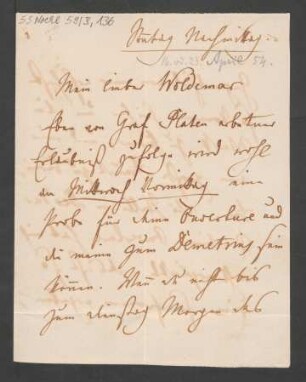 55 Nachl 58/3, 136
Sonntag Nachmittag.
16. od. 23. April 54.
Mein lieber Woldemar
Eben von Graf Platen erbetner
Erlaubniß zufolge wird wohl
am Mittwoch Vormittag eine
Probe für deine Ouverture und
die meine zum Demetrius sein
können. Wenn es nicht bis
zum Dienstag Morgen